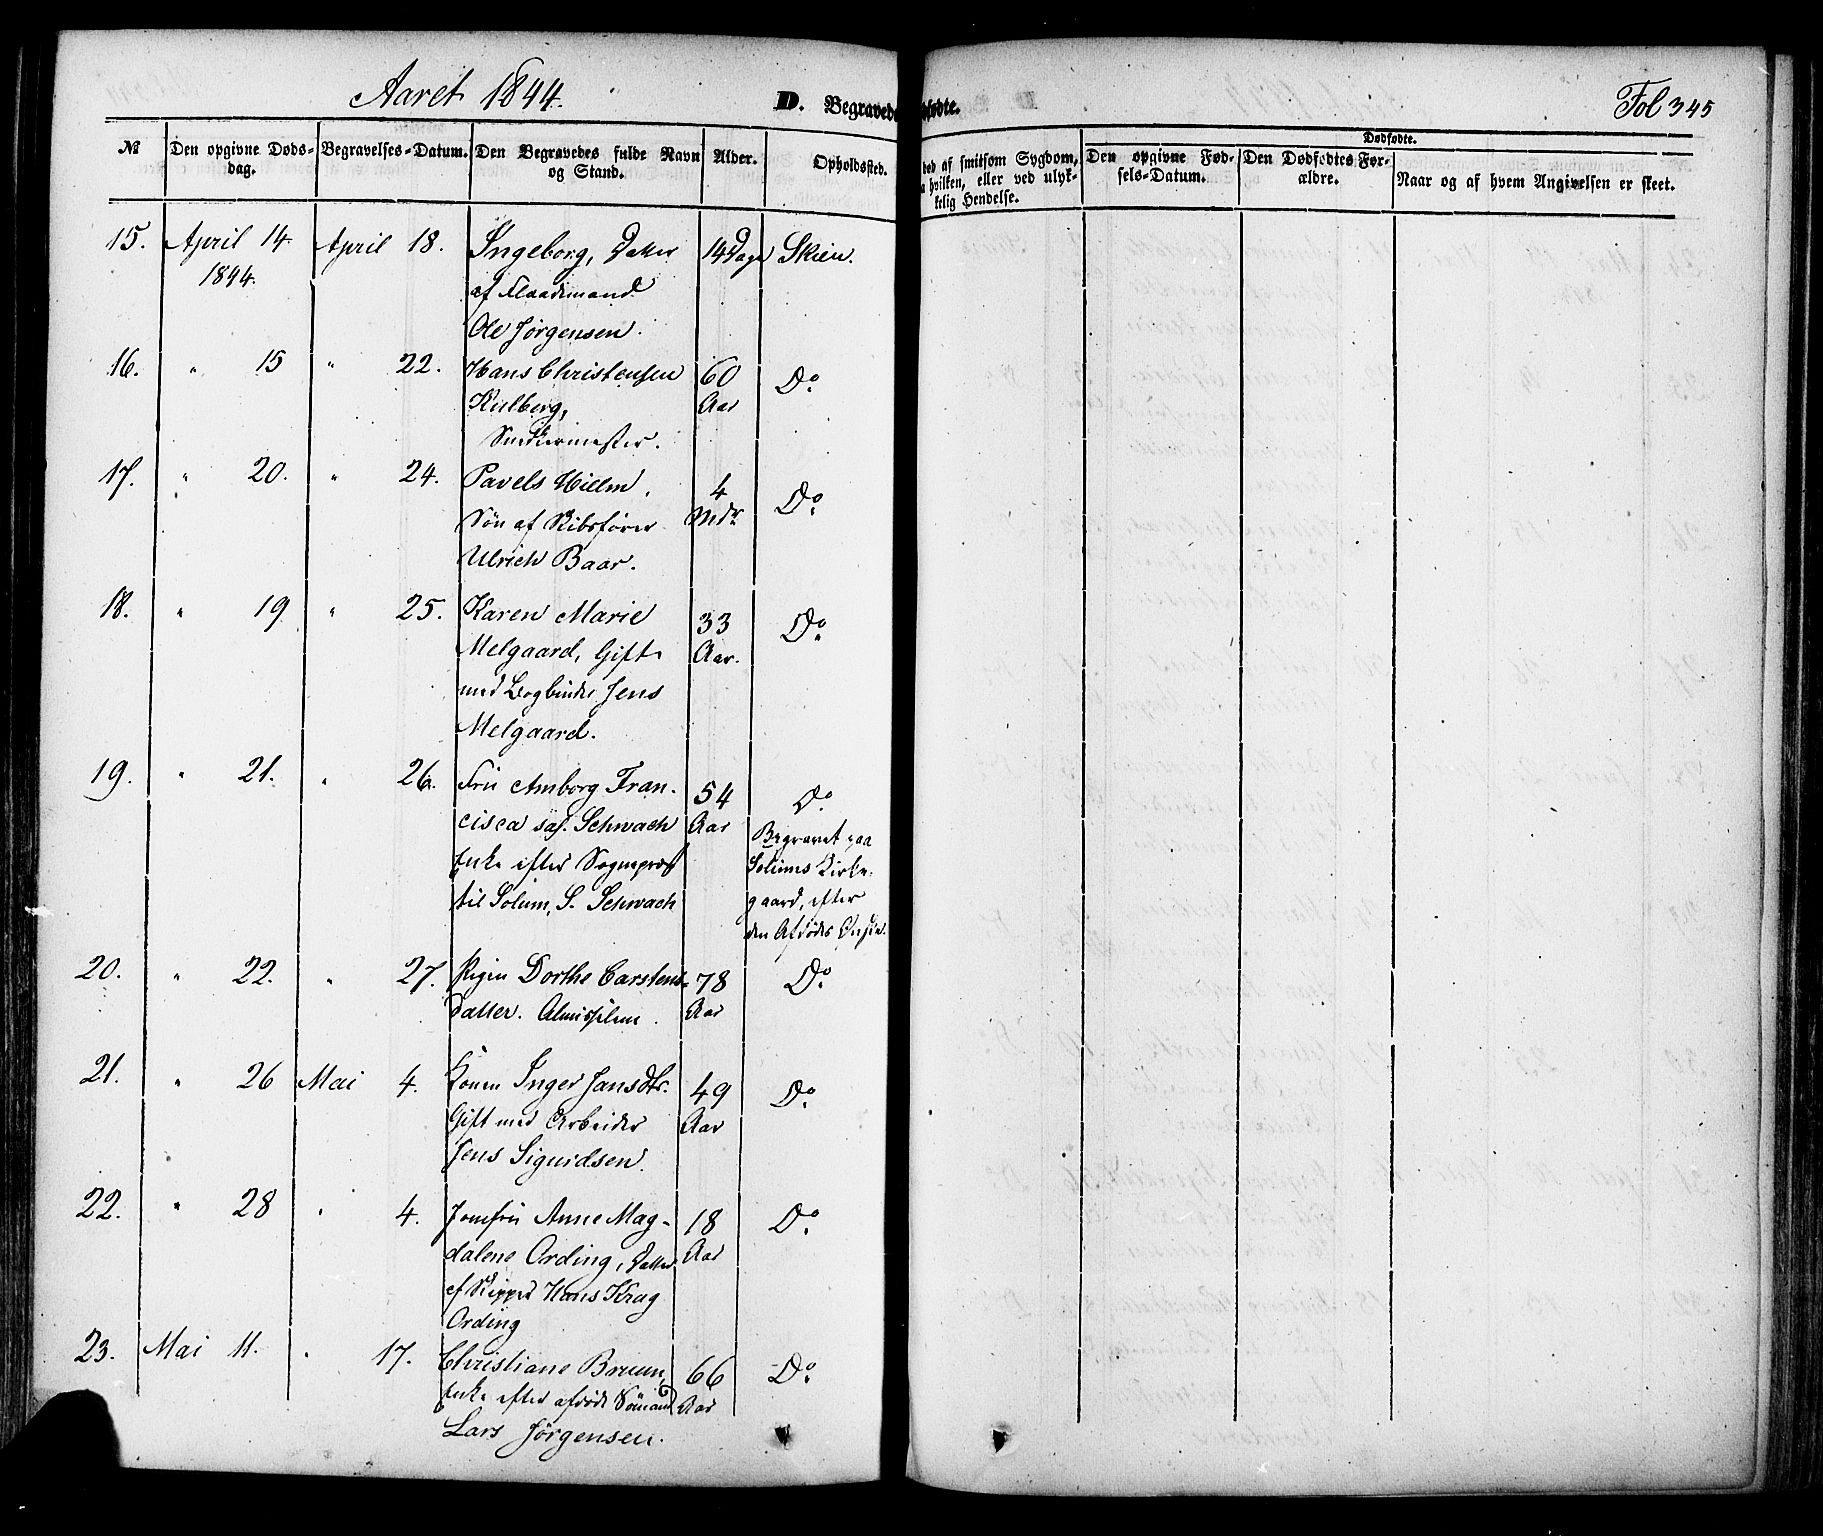 Aaret 1844.
D. Begravede
dfødte.
Fol 345
№
Den opgivne Døds-
dag.
Begravelses-Datum.
Den Begravedes fulde Navn
og Stand.
Alder.
Opholdssted.
ved af smitsom Sygdom,
a hvilken, eller ved ulyk-
kelig Hendelse.
Dødfødte.
Den opgivne Fød-
sels-Datum.
Den Dødfødtes For-
ældre.
Naar og af hvem Angivelsen er skeet.
15. April 14. April 18. Ingeborg, Datter 14 Dage Skien.
1844. af Flaadmand
Ole Jørgensen.
16. " 15 " 22. Hans Christensen 60 Do
Kulberg, Aar
Snedkermester.
17. " 20. " 24. Pavels Hielm, 4 Do
Søn af Skibsfører Mdr
Ulrich Baar.
18. " 19. " 25. Karen Marie 33 Do
Melgaard, Gift Aar.
med Bogbinder Jens
Melgaard.
19. " 21. " 26. Fru Amborg Fran- 54 Do
cisca sal. Schwach Aar Begravet paa
Enke efter Sognepræst Solums Kirke-
til Solum, S. Schwach gaard, efter
den Afdødes Ønske.
20. " 22. " 27. Pigen Dorthe Carstens- 78 Do
datter. Almisselem. Aar
21. " 26 Mai 4. Konen Inger Jansdtr. 49 Do
Gift med Arbeider Aar
Jens Sigurdsen.
22. " 28 " 4. Jomfru Anne Mag- 18 Do
dalene Ording, Datter Aar
af Skipper Hans Krag
Ording
23. Mai 11. " 17. Christiane Bruun, 66 Do
Enke efter afdøde Sømand Aar
Lars Jørgensen.